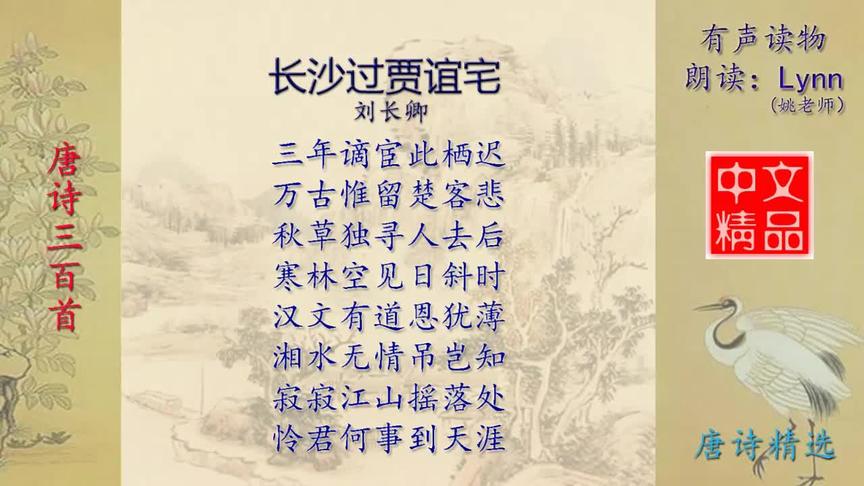 长沙过贾谊宅
刘长卿
三年谪宦此栖迟
万古惟留楚客悲
秋草独寻人去后
寒林空见日斜时
汉文有道恩犹薄
湘水无情吊岂知
寂寂江山摇落处
怜君何事到天涯
唐诗三百首
有声读物
朗读：Lynn
（姚老师）
中文
精品
唐诗精选